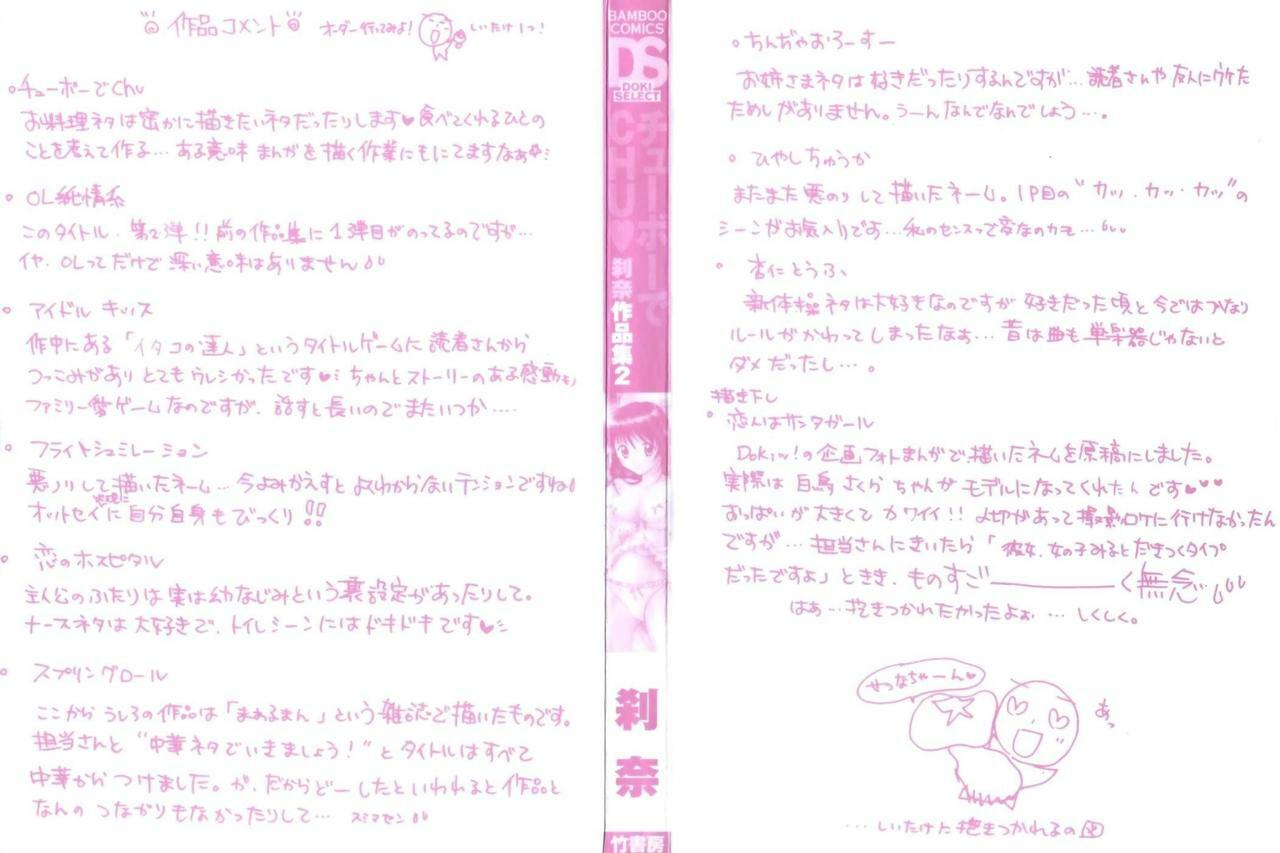 作品コメント
オーダー行ってみよ!
しいたけ1つ!
・チューボーでChu
お料理ネタは密かに描きたいネタだったりします♥食べてくれるひとの
ことを考えて作る…ある意味まんがを描く作業にもにてますなぁ
・OL純情系
このタイトル、第2弾!!前の作品集に1弾目がのってるのですが…
イヤ、OLってだけで深い意味はありません
・アイドルキッス
作中にある「イタコの達人」というタイトルゲームに読者さんから
つっこみがありとてもウレシかったです♥ちゃんとストーリーのある感動も
ファミリー愛ゲームなのですが、話すと長いのでまたいつか……
・フライトシュミレーション
悪ノリして描いたネーム…今よみかえすとよくわからないテンションですね
オットセイに自分自身もびっくり!!
・恋のホスピタル
主人公のふたりは実は幼なじみという裏設定があったりして。
ナースネタは大好きで、トイレシーンにはドキドキです♥
・スプリングロール
ここからうしろの作品は「まぁるまん」という雑誌で描いたものです。
担当さんと"中華ネタでいきましょう!"とタイトルはすべて
中華からつけました。が、だからどーしたといわれると作品と
なんのつながりもなかったりして…スミマセン
BAMBOO
COMICS
DS
DOKI
SELECT
チューボーで
CHU♥
刹奈作品集2
刹奈
竹書房
・ちんぢゃおろーすー
お姉さまネタは好きだったりするんですが…読者さんや友人にウケた
ためしがありません。うーんなんでなんでしょう…。
・ひやしちゅうか
またまた悪のりして描いたネーム。1P目の"カッ・カッ・カッ"の
シーンがお気入りです…私のセンスって変なのカモ…
・杏仁とうふ
新体操ネタは大好きなのですが好きだった頃と今ではかなり
ルールがかわってしまったなぁ…昔は曲も単楽器じゃないと
ダメだったし…。
描き下し
・恋人はサンタガール
Dokiッ!の企画フォトまんがで、描いたネームを原稿にしました。
実際は白鳥さくらちゃんがモデルになってくれたんです♥♥♥
おっぱいが大きくてカワイイ!!〆切があって撮影ロケに行けなかったん
ですが…担当さんにきいたら「彼女、女の子みるとだきつくタイプ
だったですよ」ときき、ものすご――――く無念…
はぁ…抱きつかれたかったよぉ…しくしく。
せつなちゃーん♥
あっ
…しいたけに抱きつかれるの図